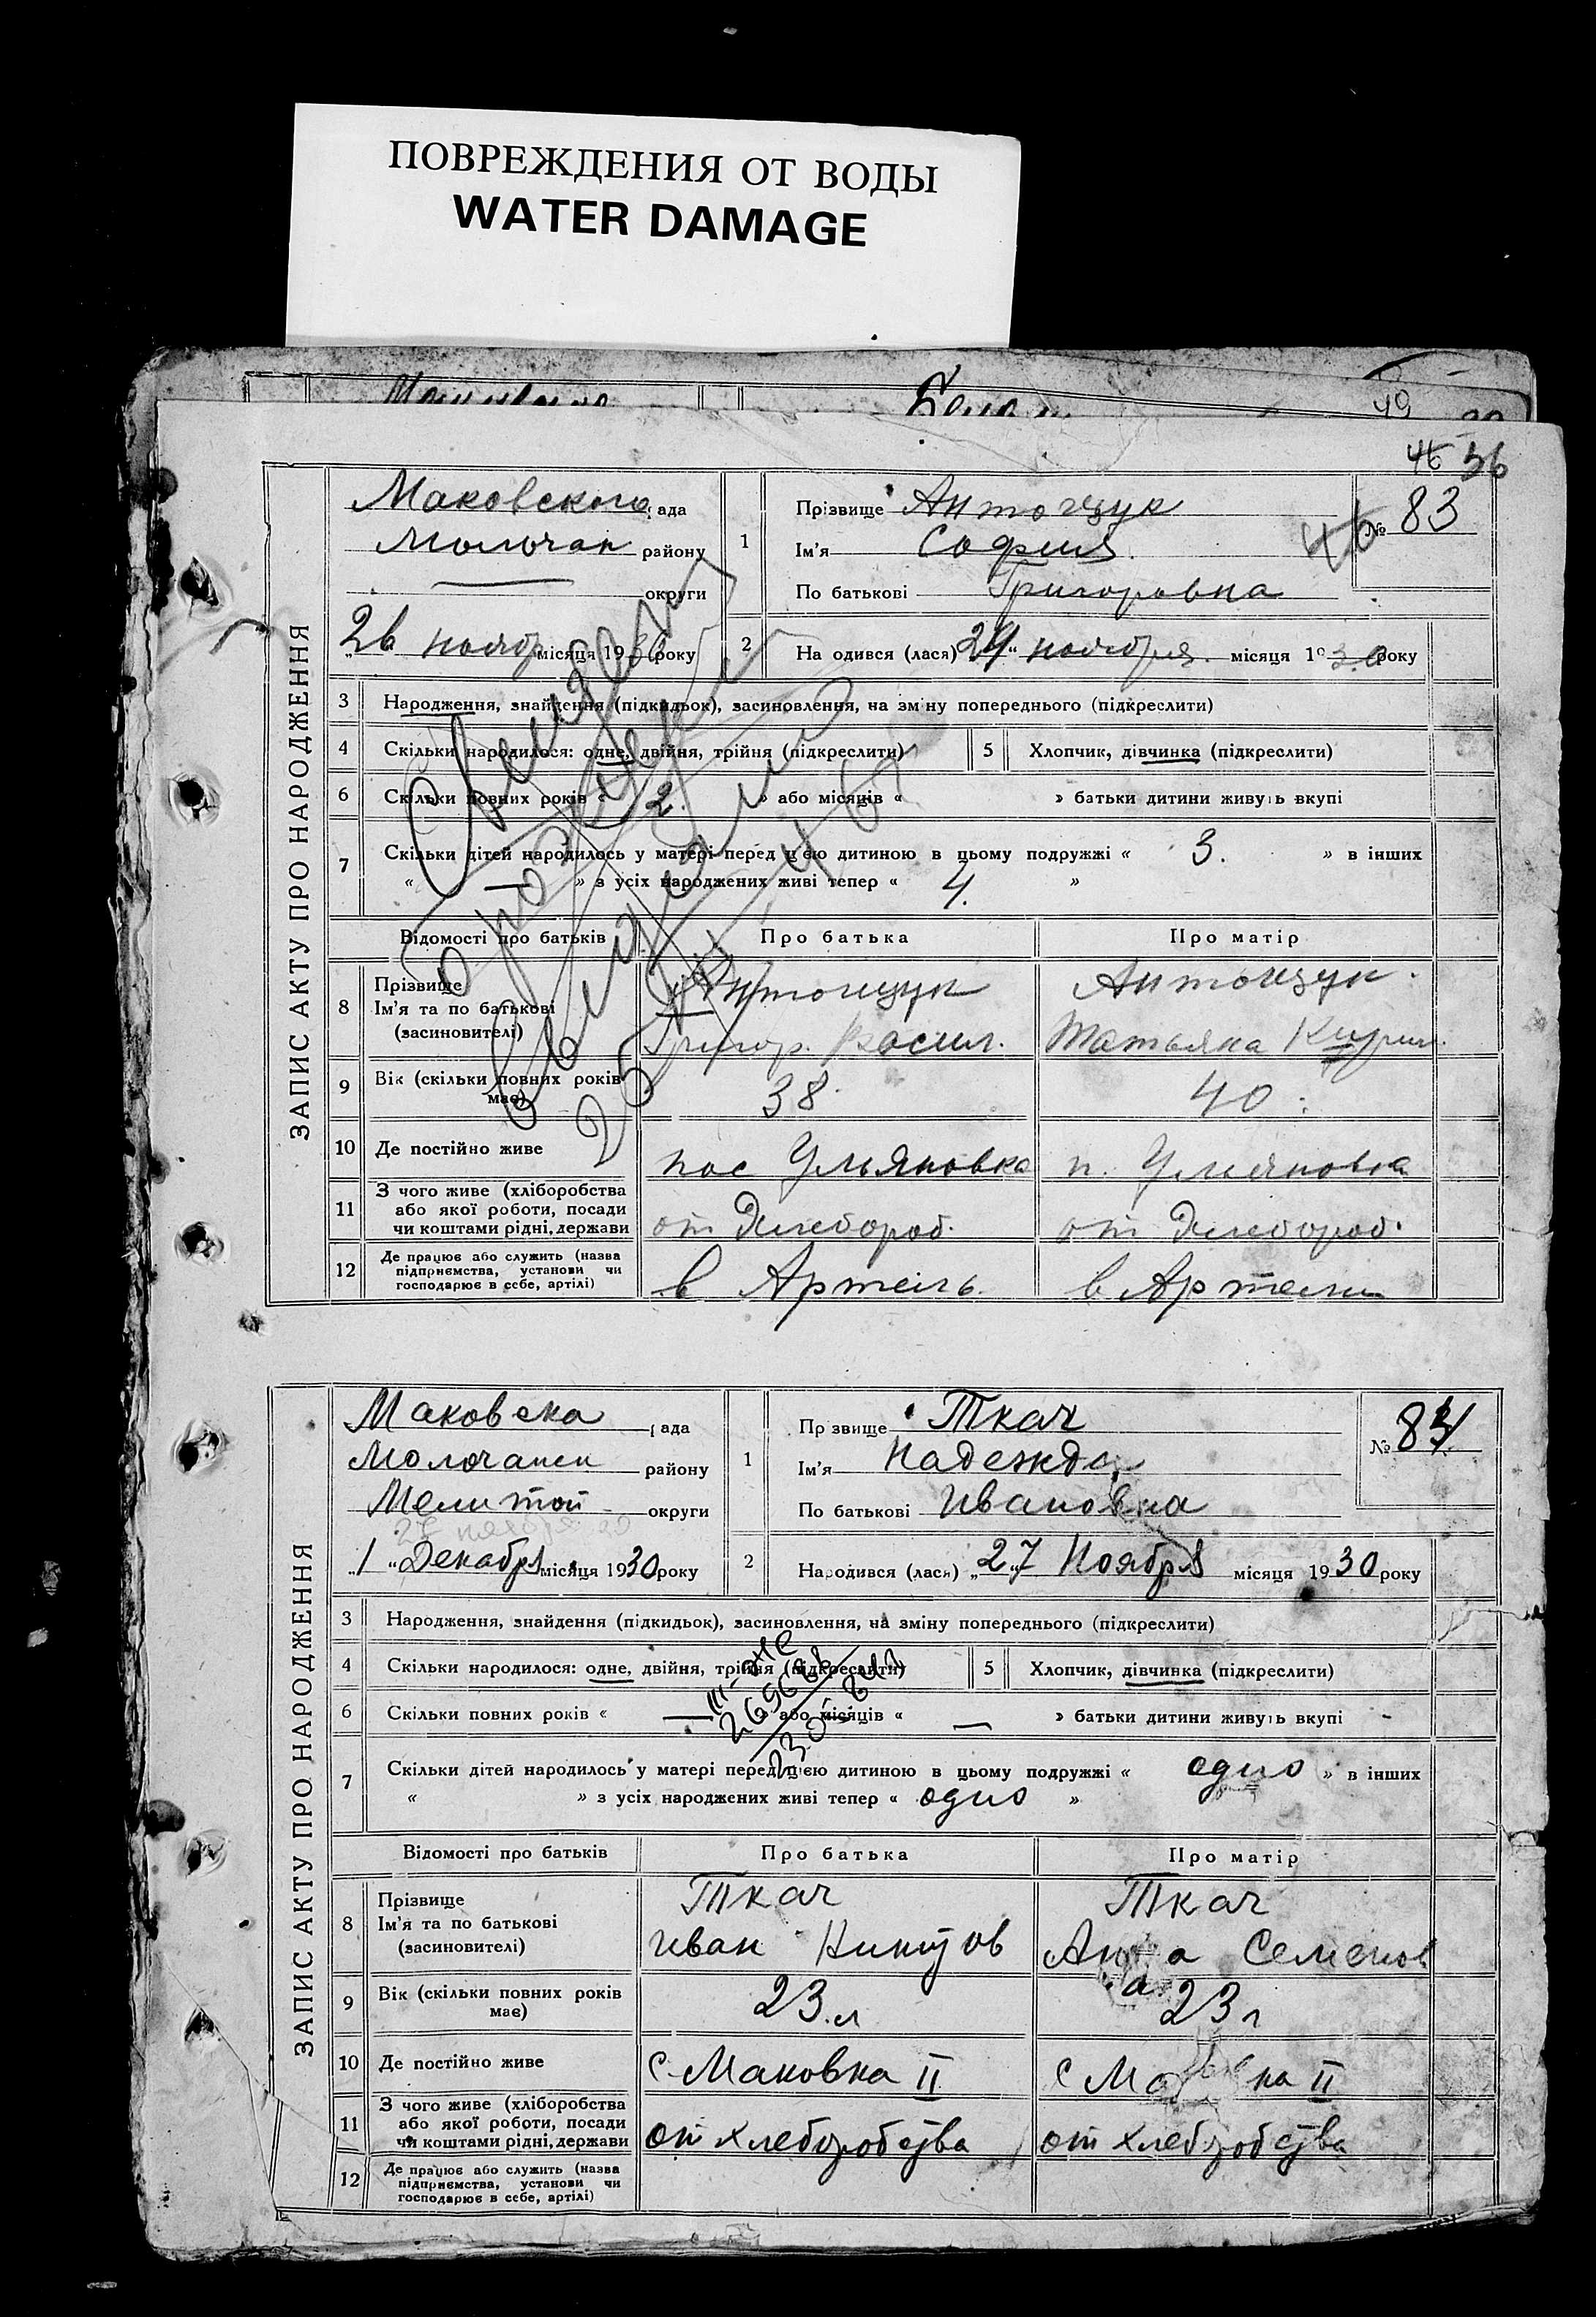 ПОВРЕЖДЕНИЯ ОТ ВОДЫ
WATER DAMAGE
49
46 56
ЗАПИС АКТУ ПРО НАРОДЖЕННЯ
Маковского ада
Молочан району
округи
26 ноябр місяця 1930 року
1 Прізвище Антощук
Ім'я София
По батькові Григоровна
№ 83
46
2 На одився (лася) 24 ноября місяця 1930 року
3 Народження, знайдення (підкидьок), засиновлення, на зм ну попереднього (підкреслити)
4 Скільки народилося: одне, двійня, трійня (підкреслити)
5 Хлопчик, дівчинка (підкреслити)
6 Скільки повних років « 12. » або місяців « » батьки дитини живуть вкупі
7 Скільки дітей народилось у матері перед цією дитиною в цьому подружжі « 3. » в інших
« » з усіх народжених живі тепер « 4. »
Відомості про батьків Про батька Про матір
8 Прізвище Антощук Антощук
Ім'я та по батькові
(засиновителі) Григор. Васил. Татьяна Кирил.
9 Вік (скільки повних років має) 38 40
10 Де постійно живе пос Ульяновка п. Ульяновка
11 З чого живе (хліборобства
або якої роботи, посади
чи коштами рідні, держави от Хлебороб. от Хлебороб.
12 Де працює або служить (назва
підприємства, установи чи
господарює в себе, артілі) в Артель. в Артели
ЗАПИС АКТУ ПРО НАРОДЖЕННЯ
Маковска ада
Молочанск району
Мелитоп округи
1 " Декабря місяця 1930 року
1 Пр звище Ткач
Ім'я Надежда
По батькові Ивановна
№ 84
2 Народився (лася) „27" Ноября місяця 1930 року
3 Народження, знайдення (підкидьок), засиновлення, на зміну попереднього (підкреслити)
4 Скільки народилося: одне, двійня, трійня (підкреслити)
5 Хлопчик, дівчинка (підкреслити)
6 Скільки повних років « — або місяців « — » батьки дитини живуть вкупі
7 Скільки дітей народилось у матері перед цією дитиною в цьому подружжі « одно » в інших
« » з усіх народжених живі тепер « одно »
Відомості про батьків Про батька Про матір
8 Прізвище Ткач Ткач
Ім'я та по батькові
(засиновителі) Иван Анна Семенов
а
9 Вік (скільки повних років має) 23.л 23 л
10 Де постійно живе с Маковка II с Маковка II
11 З чого живе (хліборобства
або якої роботи, посади
чи коштами рідні, держави от хлеборобства от хлеборобства
12 Де працює або служить (назва
підприємства, установи чи
господарює в себе, артілі)